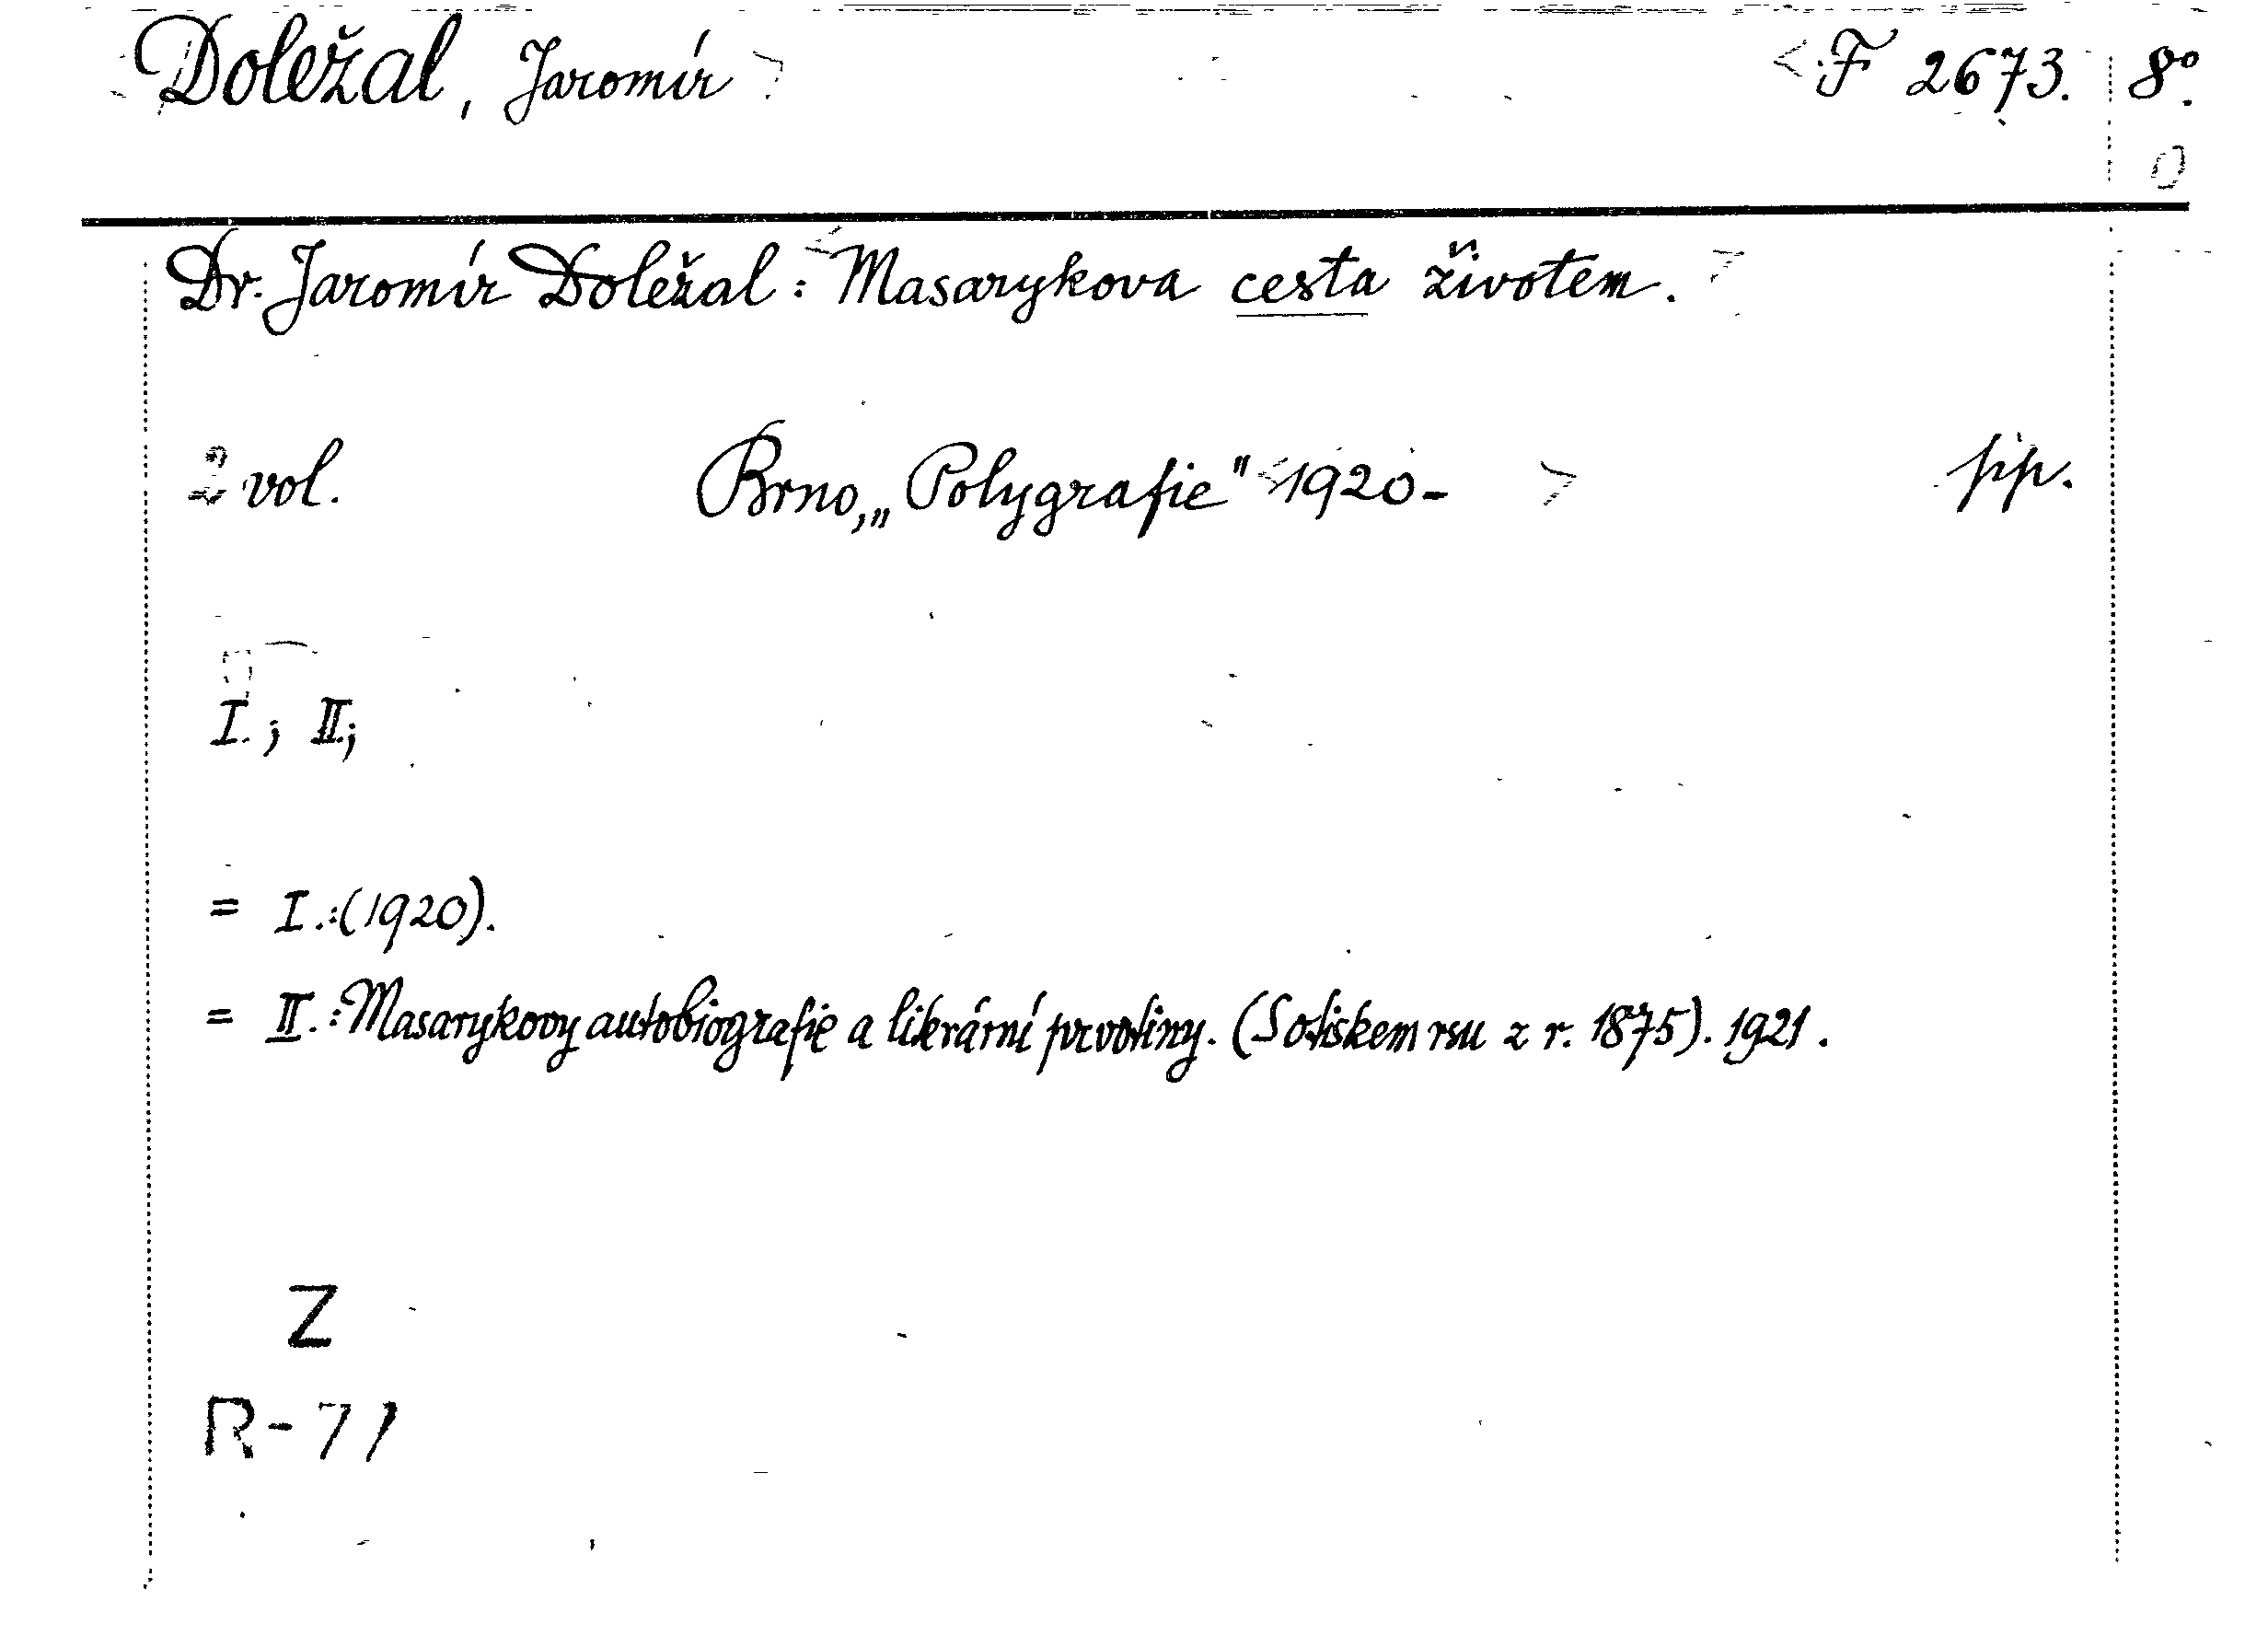 Doležal, Jaromír <F 2673. 8°.
Dr. Jaromír Doležal: Masarykova cesta životem.
2 vol. Brno, „Polygrafie" <1920- > pp.
I.; II.;
= I.:(1920).
= II.: Masarykovy autobiografie a literární prvotiny. (S otiskem rsu z r. 1875). 1921.
Z
R-71